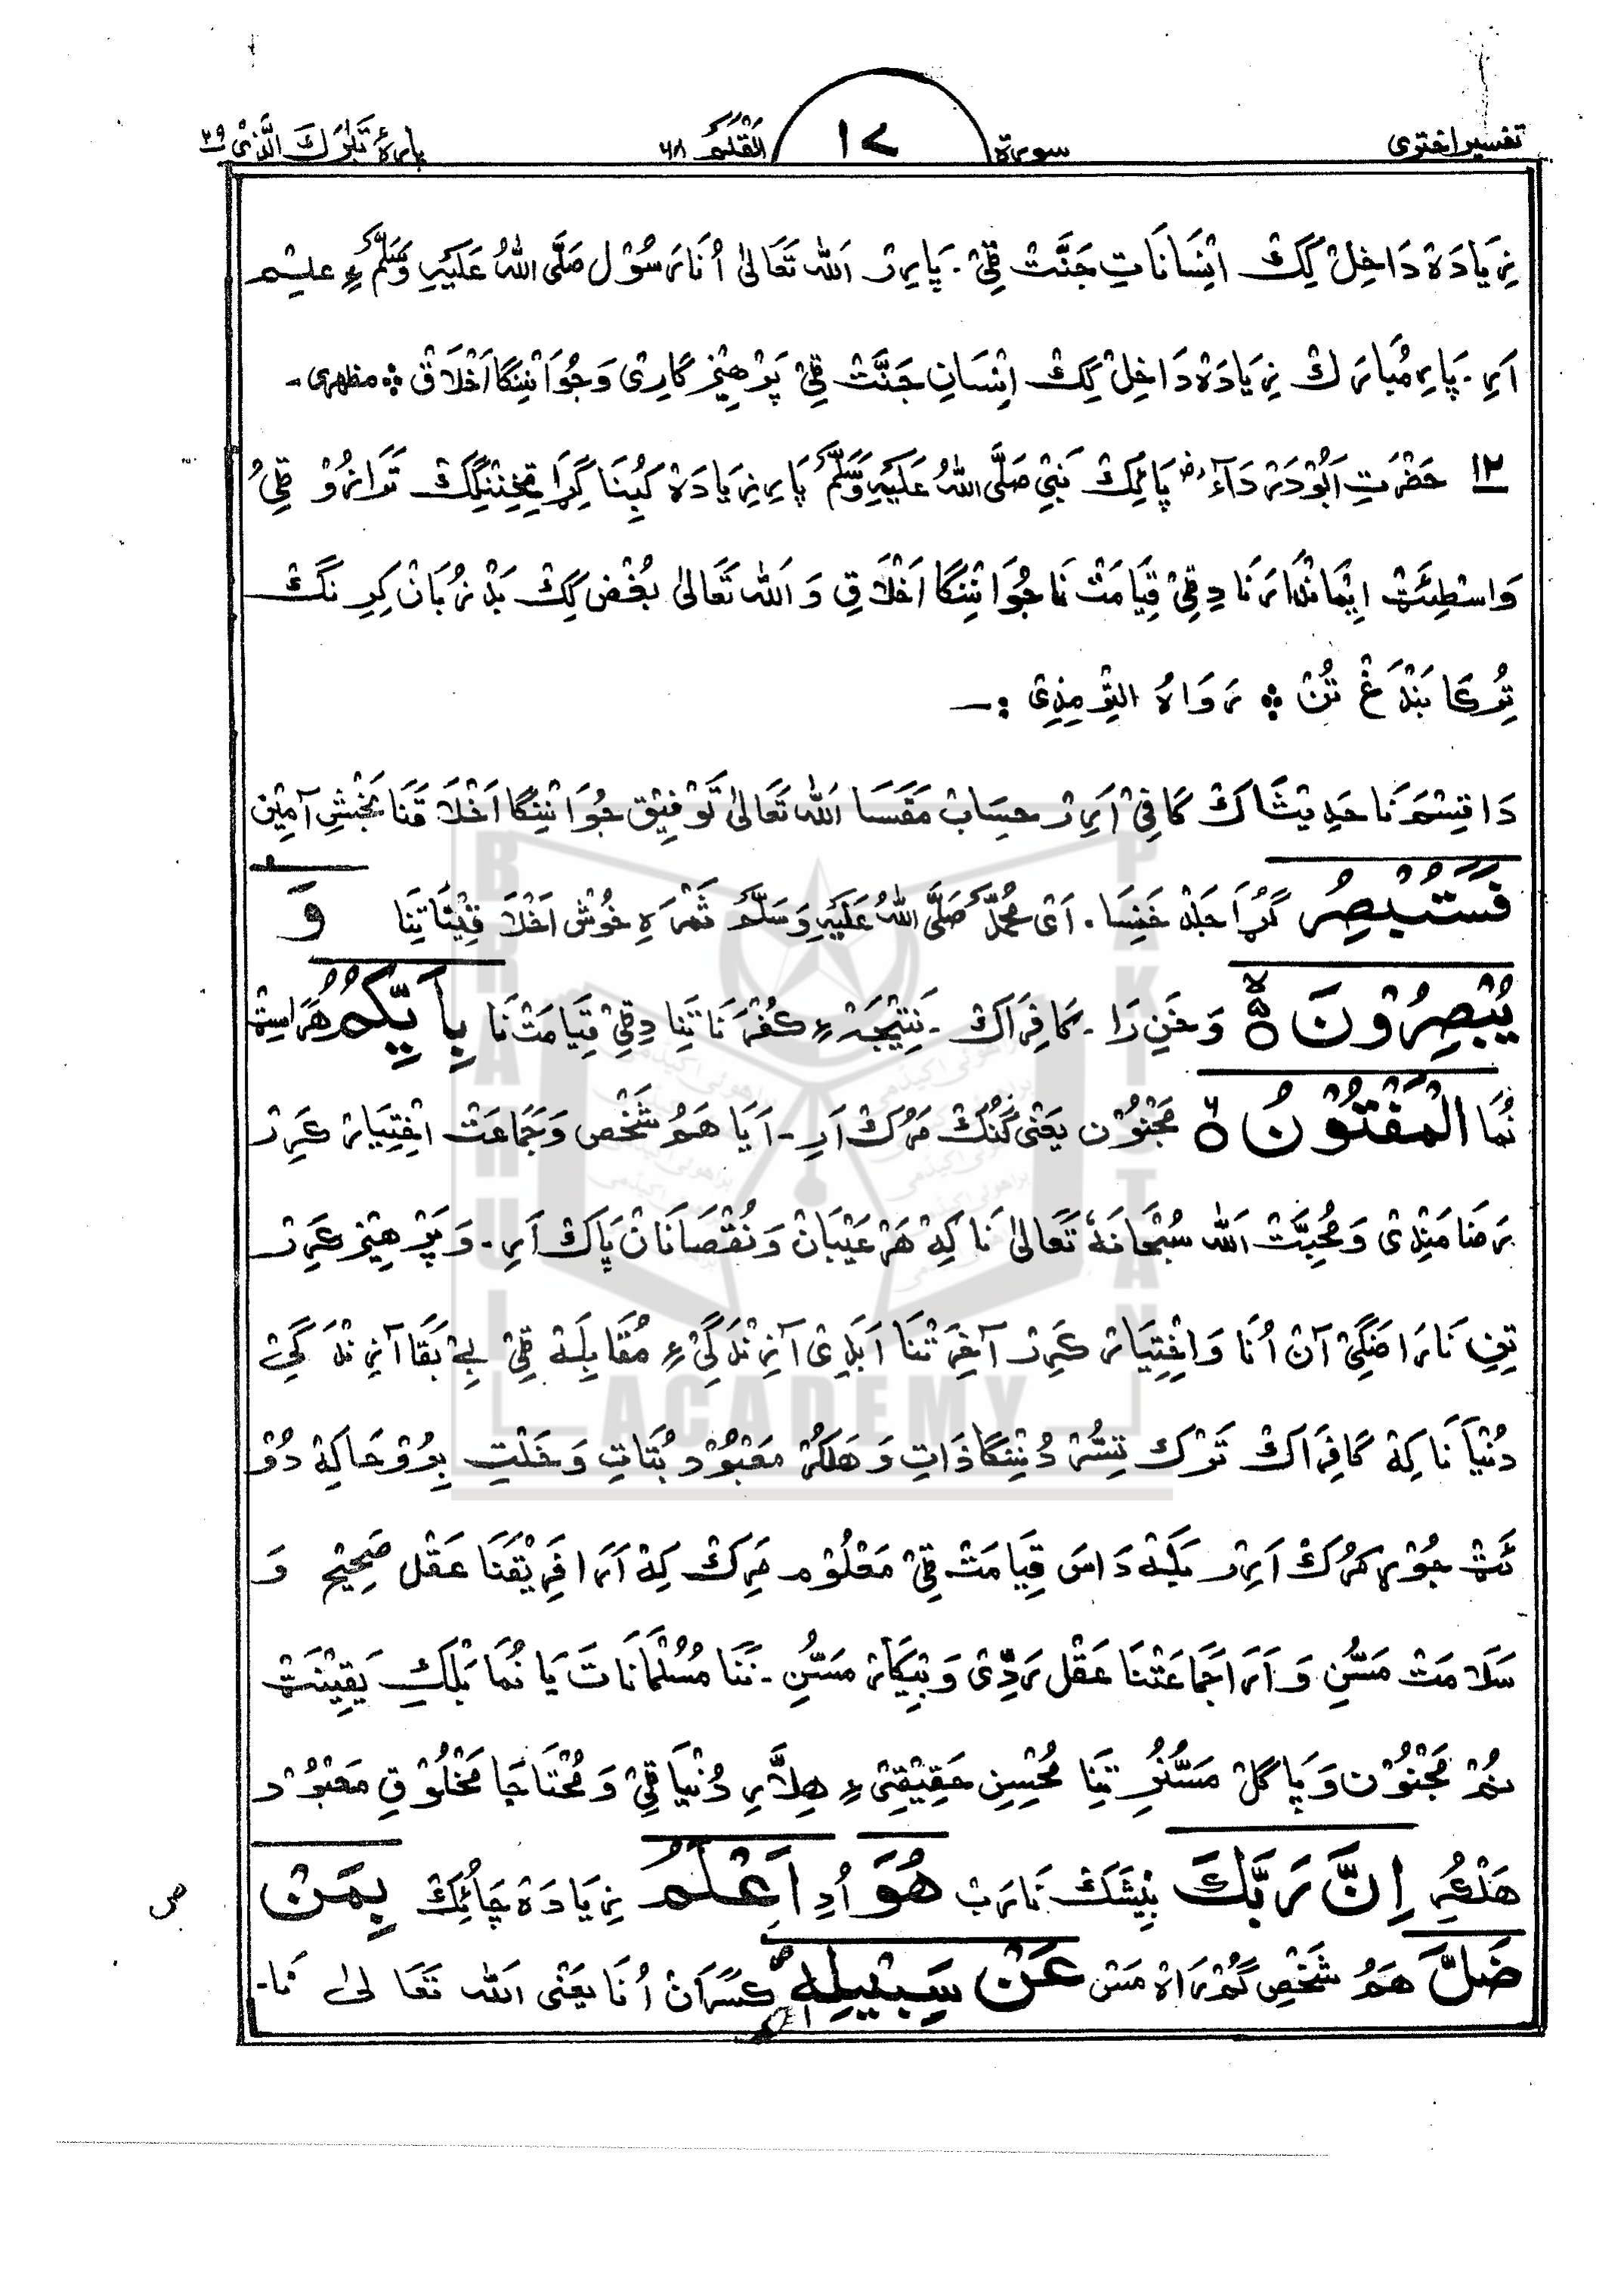 تفسیر اختری سورة ١٧ اَلْقَلَمُ ٦٨ پارۂ تَبٰرَكَ الَّذِیْ ٢٩
زِیَادَہ دَاخِلْ کِکْ اِنْسَانَاتِ جَنَّتْ قِیْ۔ پَارِرْ اَللّٰہ تَعَالیٰ اُنَا رَسُوْل صَلَّی اللّٰہُ عَلَیْہِ وَسَلَّمْ ءِ عَلِیْم
اَرِ۔ پَارِ مُبَارَكْ زِیَادَہ دَاخِلْ کِکْ اِنْسَانِ جَنَّتْ قِیْ پَرْهِیْزگَارِیْ وَ جُوَانْنِنگَا اَخْلَاقْ ؞ مظہری۔
١٢ حَضْرَتِ اَبُوْدَرْدَآءْ رض پَائِكْ نَبِیْ صَلَّی اللّٰہُ عَلَیْہِ وَسَلَّمْ پَارِ زِیَادَہ کُبِنَا گِرَا تَخِنِنگِكْ تَرَازُوْ قِیْ
وَاسْطِئَتْ اِیْمَانْدَارَنَا دِ قِیْ قِیَامَتْ نَا جُوَانْنِنگَا اَخْلَاقِ وَ اَللّٰہ تَعَالیٰ بُغْض کِكْ بَدْ زُبَانْ کِرِنگَكْ
تُرکَا بَنْدَغْ تُنْ ؞ رَوَاہُ التِّرْمِذِیْ :۔
دَا قِسْمَنَا حَدِیْثَاكْ کَافِیْ اَرِرْ حِسَابْ مَقَسَا اَللّٰہ تَعَالیٰ تَوْفِیْق جُوَانْنِنگَا اَخْلَاقَنَا بَخْشِ آمِیْن
فَسَتُبْصِرُ گُڑَا جَلْد خَنِسَا۔ اَیْ مُحَمَّدْ صَلَّی اللّٰہُ عَلَیْہِ وَسَلَّمْ ثَمْرَہِ خُوْش اَخْلَاقِیْنَا تِنَا وَ
یُبْصِرُوْنَ ۵ وَ خَنِرَا۔ کَافِرَاكْ۔ نَتِیْجَہْ ءِ کُفْرَنَا تِنَا دِ قِیْ قِیَامَتْ نَا بِاَیِّکُمُ هَرَاسِٹ
نُمَا الْمَفْتُوْنُ ٦ مَجْنُوْن یَعْنی گَنُکْ مَرُكْ اَرِ۔ اَیَا هَمُ شَخْص وَ جَمَاعَتْ اِخْتِیَارْ کَرِرْ
رَضَامَنْدِیْ وَ مُحَبَّتْ اَللّٰہ سُبْحَانَہٗ تَعَالیٰ نَا کِہْ هَرْ عَیْبَانْ وَ نُقْصَانَانْ پَاكْ اَرِ۔ وَ پَرْهِیْز کَرِرْ
تِنِ نَارَاضَگِیْ آنْ اُنَا وَ اِخْتِیَارْ کَرِرْ آخِرَتْنَا اَبَدِیْ آ زِنْدَگِیْ ءِ مُقَابِلَہْ قِیْ بِیْ بَقَا آ زِنْدَگِیْ
دُنْیَا نَا کِہْ کَافِرَاكْ تَرْك تِسُّرْ دُنْنِنگَا ذَاتِ وَ هَلْکُرْ مَعْبُوْد بُتَاتِ وَ خَلْتِ بِرُوْ خَاکِہْ دُوْ
نَتْ جُوْڑ کَرُكْ اَرِرْ بَلْکِہْ دَاسَ قِیَامَتْ قِیْ مَعْلُوْم مَرِكْ کِہْ اَرَا فَرِیْقَنَا عَقْل صَحِیْح وَ
سَلَامَتْ مَسُّنْ وَ اَرَا جَمَاعَتْنَا عَقْل رَدِّیْ وَ بِیْکَارْ مَسُّنِ۔ نَنَا مُسُلْمَانَاتَ یَا نُمَا بَلْكِ یَقِیْنَتْ
نُمْ مَجْنُوْن وَ پَاگَلْ مَسُّنُرْ تِنَا مُحْسِنِ حَقِیْقِیْ ءِ هِلَّارِ دُنْیَا قِیْ وَ مُحْتَاجَا مَخْلُوْقِ مَعْبُوْد
هَلْکُرِ اِنَّ رَبَّكَ بِیْشَكْ نَا رَبْ هُوَ اُدِ اَعْلَمُ زِیَادَہ چَائِكْ بِمَنْ
ضَلَّ هَمُ شَخْصِ گُمْرَاہ مَسْ عَنْ سَبِیْلِہٖ کَسَرَانْ اُنَا یَعْنی اَللّٰہ تَعَالیٰ نَا۔
BRAHUI ACADEMY PAKISTAN